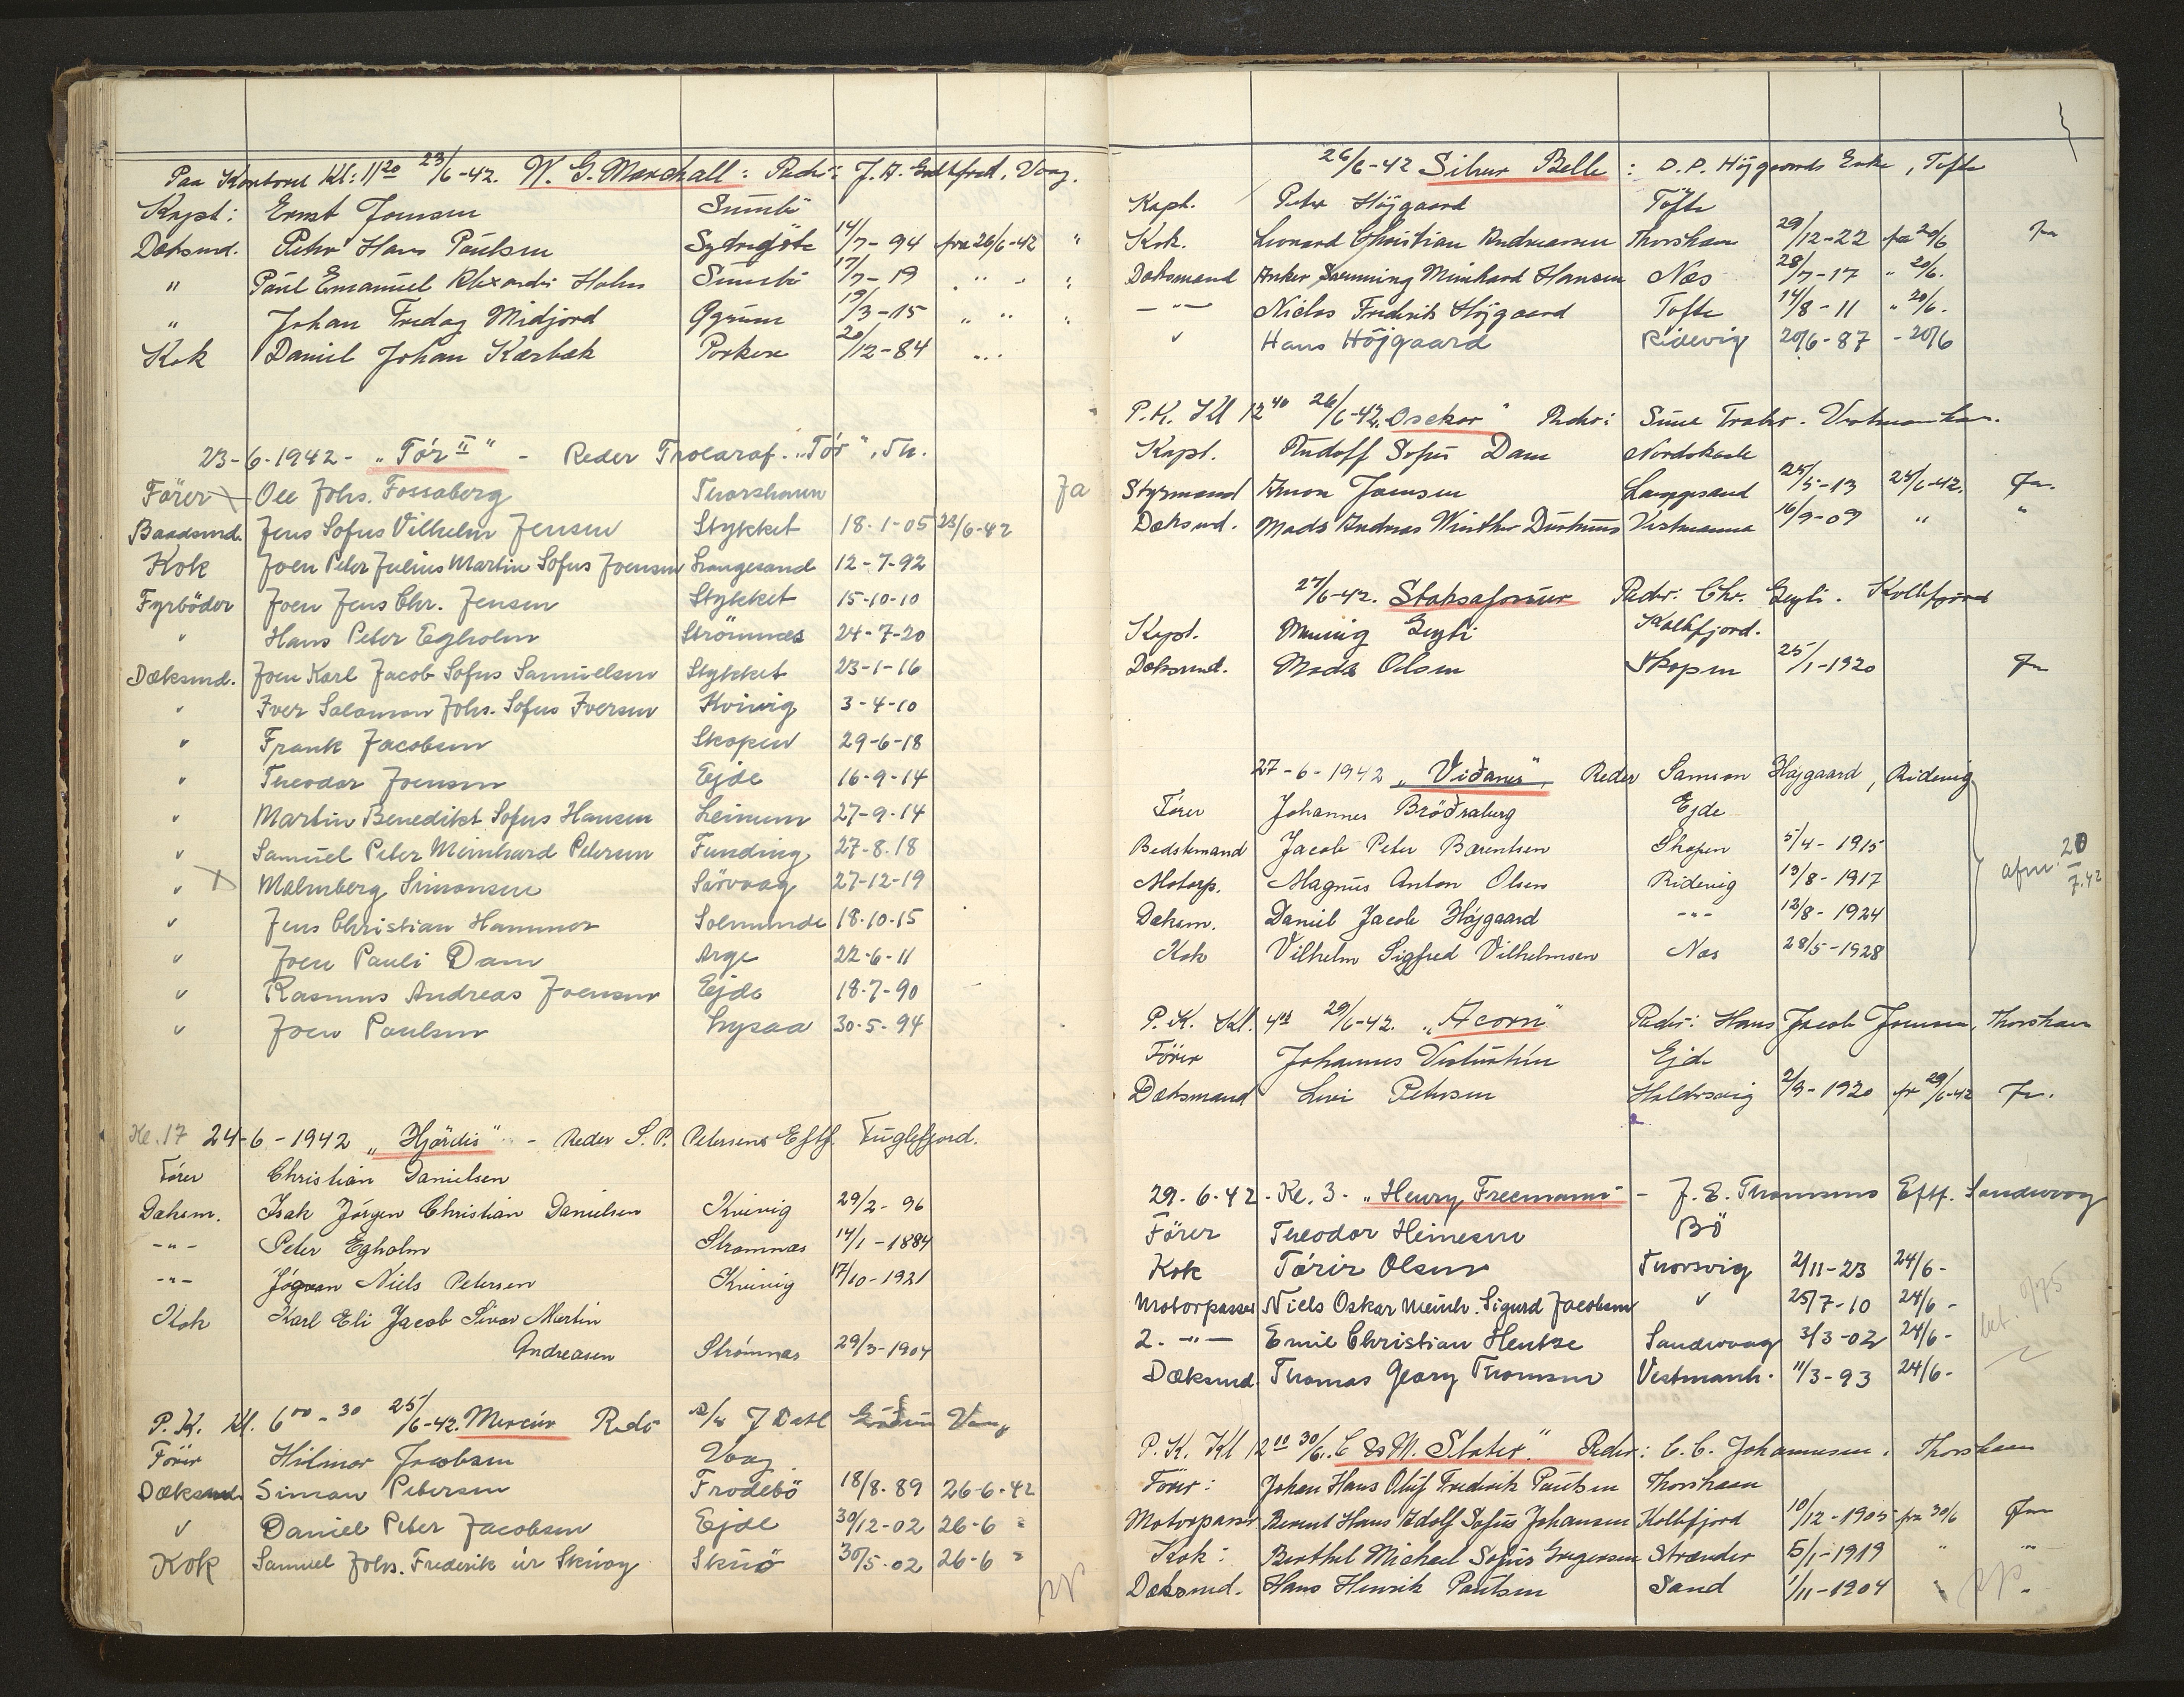 Paa Kontoret Kl: 11 20 23/6-42. W. G. Marshall: Reder: J. A. Vaag.
Kapt: Ernst Joensen Sumbö
Dæksmd. Peter Hans Paulsen Sydregöte 14/7-94 fra 26/6-42 "
" Paul Emanuel Holm Sumbö 17/7-19 " - "
" Johan Fredag Midjord Öyrum 19/3-15 " " "
Kok Daniel Johan Kærbæk Porkere 20/12-84 " "
23-6-1942 - „Tór II" - Reder Trolaraf. „Tór", Th.
Förer Ole Johs. Fossaberg Thorshavn Ja
Baadsmd. Jens Sofus Vilhelm Jensen Stykket 18-1-05 23/6-42
Kok Joen Peter Julius Martin Sofus Joensen Langesand 12-7-92
Fyrböder Joen Jens Chr. Jensen Stykket 15-10-10
" Hans Peter Egholm Strömnes 24-7-20
Dæksmd. Joen Karl Jacob Sofus Samuelsen Stykket 23-1-16
" Iver Salomon Johs. Sofus Iversen Kvivig 3-4-10
" Frank Jacobsen Skopen 29-6-18
" Theodor Joensen Ejde 16-9-14
" Martin Benedikt Sofus Hansen Leinum 27-9-14
" Samuel Peter Meinhard Petersen Funding 27-8-18
" Malmberg Simonsen Sörvaag 27-12-19
" Jens Christian Hammer Solmunde 18-10-15
" Joen Pauli Dam Arge 22-6-11
" Rasmus Andreas Joensen Ejde 18-7-90
" Joen Paulsen Lysaa 30-5-94
Kl. 17 24-6-1942 „Hjördis" - Reder S. P. Petersens Eftf. Fuglefjord.
Förer Christian Danielsen
Dæksm. Isak Jörgen Christian Danielsen Kvivig 29/2-96
-"- Peter Egholm Strømnæs 14/1-1884
-"- Jógvan Niels Petersen Kvivig 17/10-1921
Kok Karl Eli Jacob Sivar Martin
Andreasen Strömnæs 29/3-1904
P. K. Kl. 6 00 - 30 25/6-42. Mercur Reder Vaag
Förer Hilmar Jacobsen Vaag
Dæksmd. Simon Petersen Frodebö 18/8-89 26-6-42
" Daniel Peter Jacobsen Ejde 30/12-02 26-6 "
Kok Samuel Johs. Frederik úr Skúvoy Skuö 30/5-02 26-6 "
26/6-42 Silver Belle: D. P. Höjgaards Enke, Tofte
Kapt. Peter Höjgaard Töfte
Kok. Leonard Christian Andreasen Thorshavn 29/12-22 fra 20/6 Ja
Dæksmand Anker Meinhard Hansen Næs 28/7-17 " 20/6.
-"- Niclas Fredrik Höjgaard Tofte 14/8-11 " 20/6.
" Hans Höjgaard Ridevig 20/6-87 - 20/6
P. K. Kl 12 40 26/6-42. „Osekor" Reder: Vestmanhavn.
Kapt. Rudolf Sofus Dam Nordskaale
Styrmand Amon Joensen Langesand 25/5-13 25/6-42. Ja.
Dæksmd. Mads Andreas Winther Vestmanna 16/9-09 " "
27/6-42. Staksafossur Reder: Chr. Geyti. Kollefjord
Kapt. Geyti Kollefjord.
Dæksmd. Mads Olsen Skopen 25/1-1920 Ja
27-6-1942 „Viðanes", Reder Samson Højgaard, Ridevig
Förer Johannes Bröðraberg Ejde
Bedstemand Jacob Peter Bærentsen Skopen 5/4-1915
Motorp. Magnus Anton Olsen Ridevig 13/8-1917 afm. 20/7.42
Dæksm. Daniel Jacob Højgaard -"- 12/8-1924
Kok Vilhelm Sigfred Vilhelmsen Næs 28/5-1928
P. K. Kl. 29/6-42. „Acorn" Reder: Hans Jacob Joensen, Thorshavn
Förer Johannes Vesturtún Ejde
Dæksmand Levi Petersen Haldersvig 2/9-1920 fr 29/6-42 Ja.
29.6.42. - Kl. 3. - „Henry Freemann" - J. E. Thomsens Eftf. Sandvaag
Förer Theodor Heinesen Bö
Kok Tórir Olsen Thorsvig 2/11-23 24/6-
Motorpasser Niels Oskar Meinh. Sigurd Jacobsen " 25/7-10 24/6-
2. -"- Emil Christian Hentze Sandvaag 3/3-02 24/6-
Dæksmd. Thomas Georg Thomsen Vestmanh. 11/3-93 24/6-
P. K. Kl 12 10 30/6. C & M. Slater." Reder: C. C. Johannesen. Thorshavn
Förer: Johan Hans Oluf Frederik Paulsen Thorshavn
Motorpasser Berent Hans Adolf Sofus Johansen Kollefjord 10/12-1905 fra 30/6 Ja
Kok: Berthel Michael Sofus Gregersen Strænder 5/1-1919 " "
Dæksmd. Hans Henrik Paulsen Sand 1/11-1904 " "